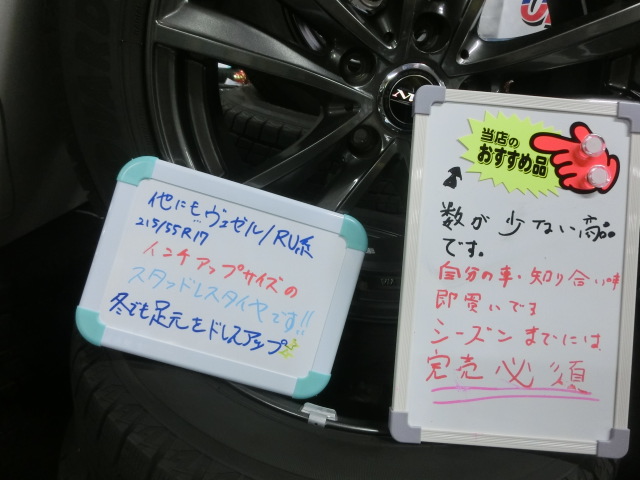 他にもヴェゼル/RU系
215/55R17
インチアップサイズの
スタッドレスタイヤです!!
冬でも足元をドレスアップ
当店の
おすすめ品
数が少ない商品
です。
自分の車・知り合い
即買いでき
シーズンまでには
完売必須